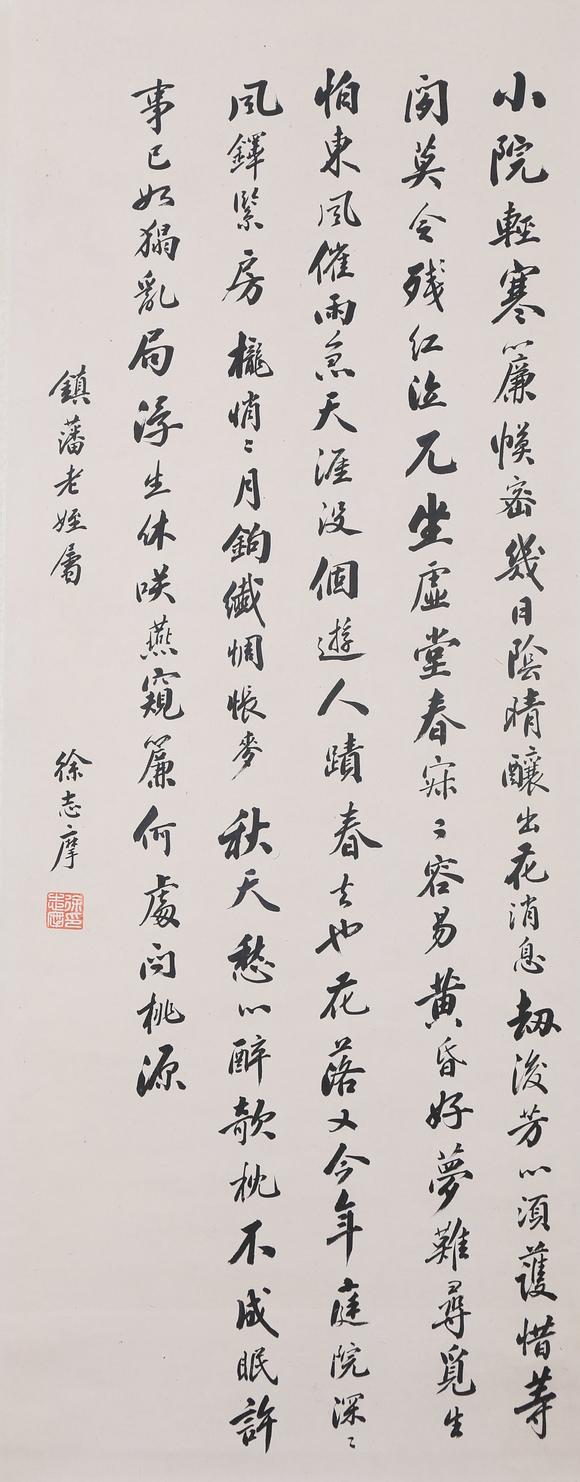 小院輕寒簾幙密幾日陰晴釀出花消息劫後芳心須護惜等
閒莫令殘紅泣兀坐虛堂春寂〻容易黃昏好夢難尋覓生
怕東風催雨急天涯沒個遊人蹟春去也花落又今年庭院深〻
風鐸緊房櫳悄〻月鉤纖惆悵麥秋天愁心醉欹枕不成眠許
事已如猧亂局浮生休咲燕窺簾何處問桃源
鎮藩老姪屬
徐志摩
徐印志摩